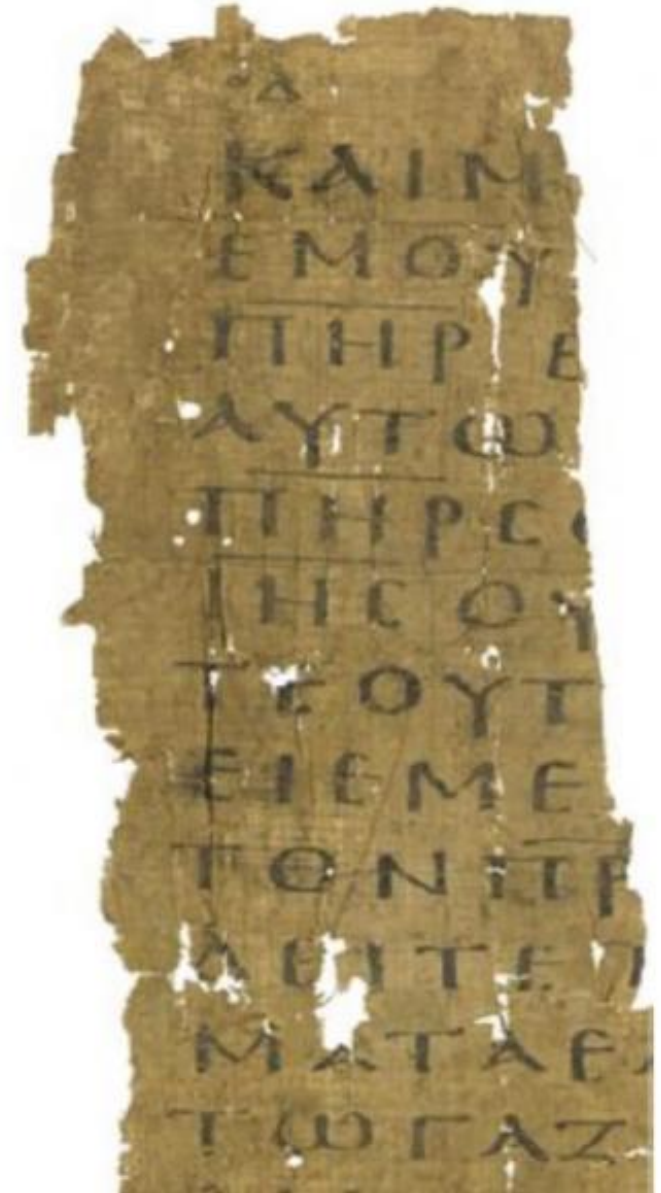 Δ
ΚΑΙΜ
ΕΜΟΥ
ΠΗΡ Ε
ΑΥΤΩ
ΠΗΡϹΟ
ΙΗϹΟΥ
ΤΕΟΥΤ
ΕΙΕΜΕ
ΤΟΝΠΡ
ΔΕΙΤΕΤ
ΜΑΤΑΕΛ
ΤΩΓΑΖ